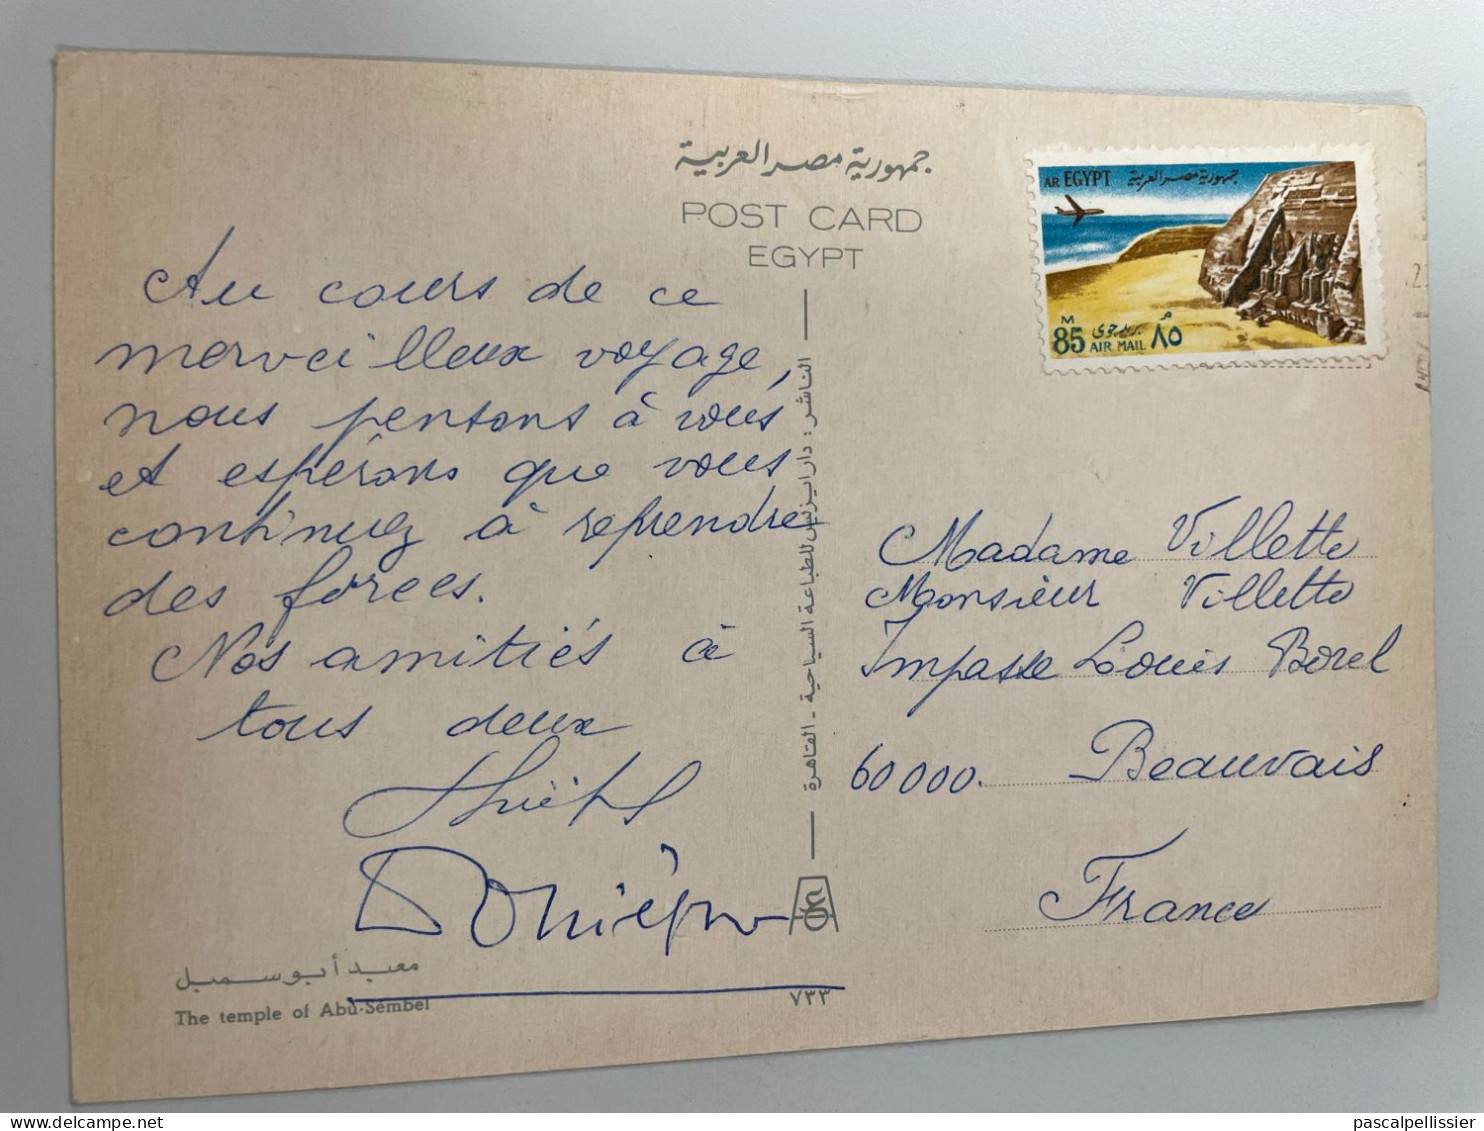 جمهورية مصر العربية
POST CARD
EGYPT
AR EGYPT جمهورية مصر العربية
M
85 بريد جوى ٨٥ م
AIR MAIL
Au cours de ce
merveilleux voyage,
nous pensons à vous
et espérons que vous
continuez à reprendre
des forces.
Nos amitiés à
tous deux
الناشر : دار ايزيس للطباعة السياحية - القاهرة
Madame Villette
Monsieur Villette
Impasse Louis Borel
60000. Beauvais
France
معبد أبو سمبل
The temple of Abu-Sembel
٧٣٣
pascalpellissier